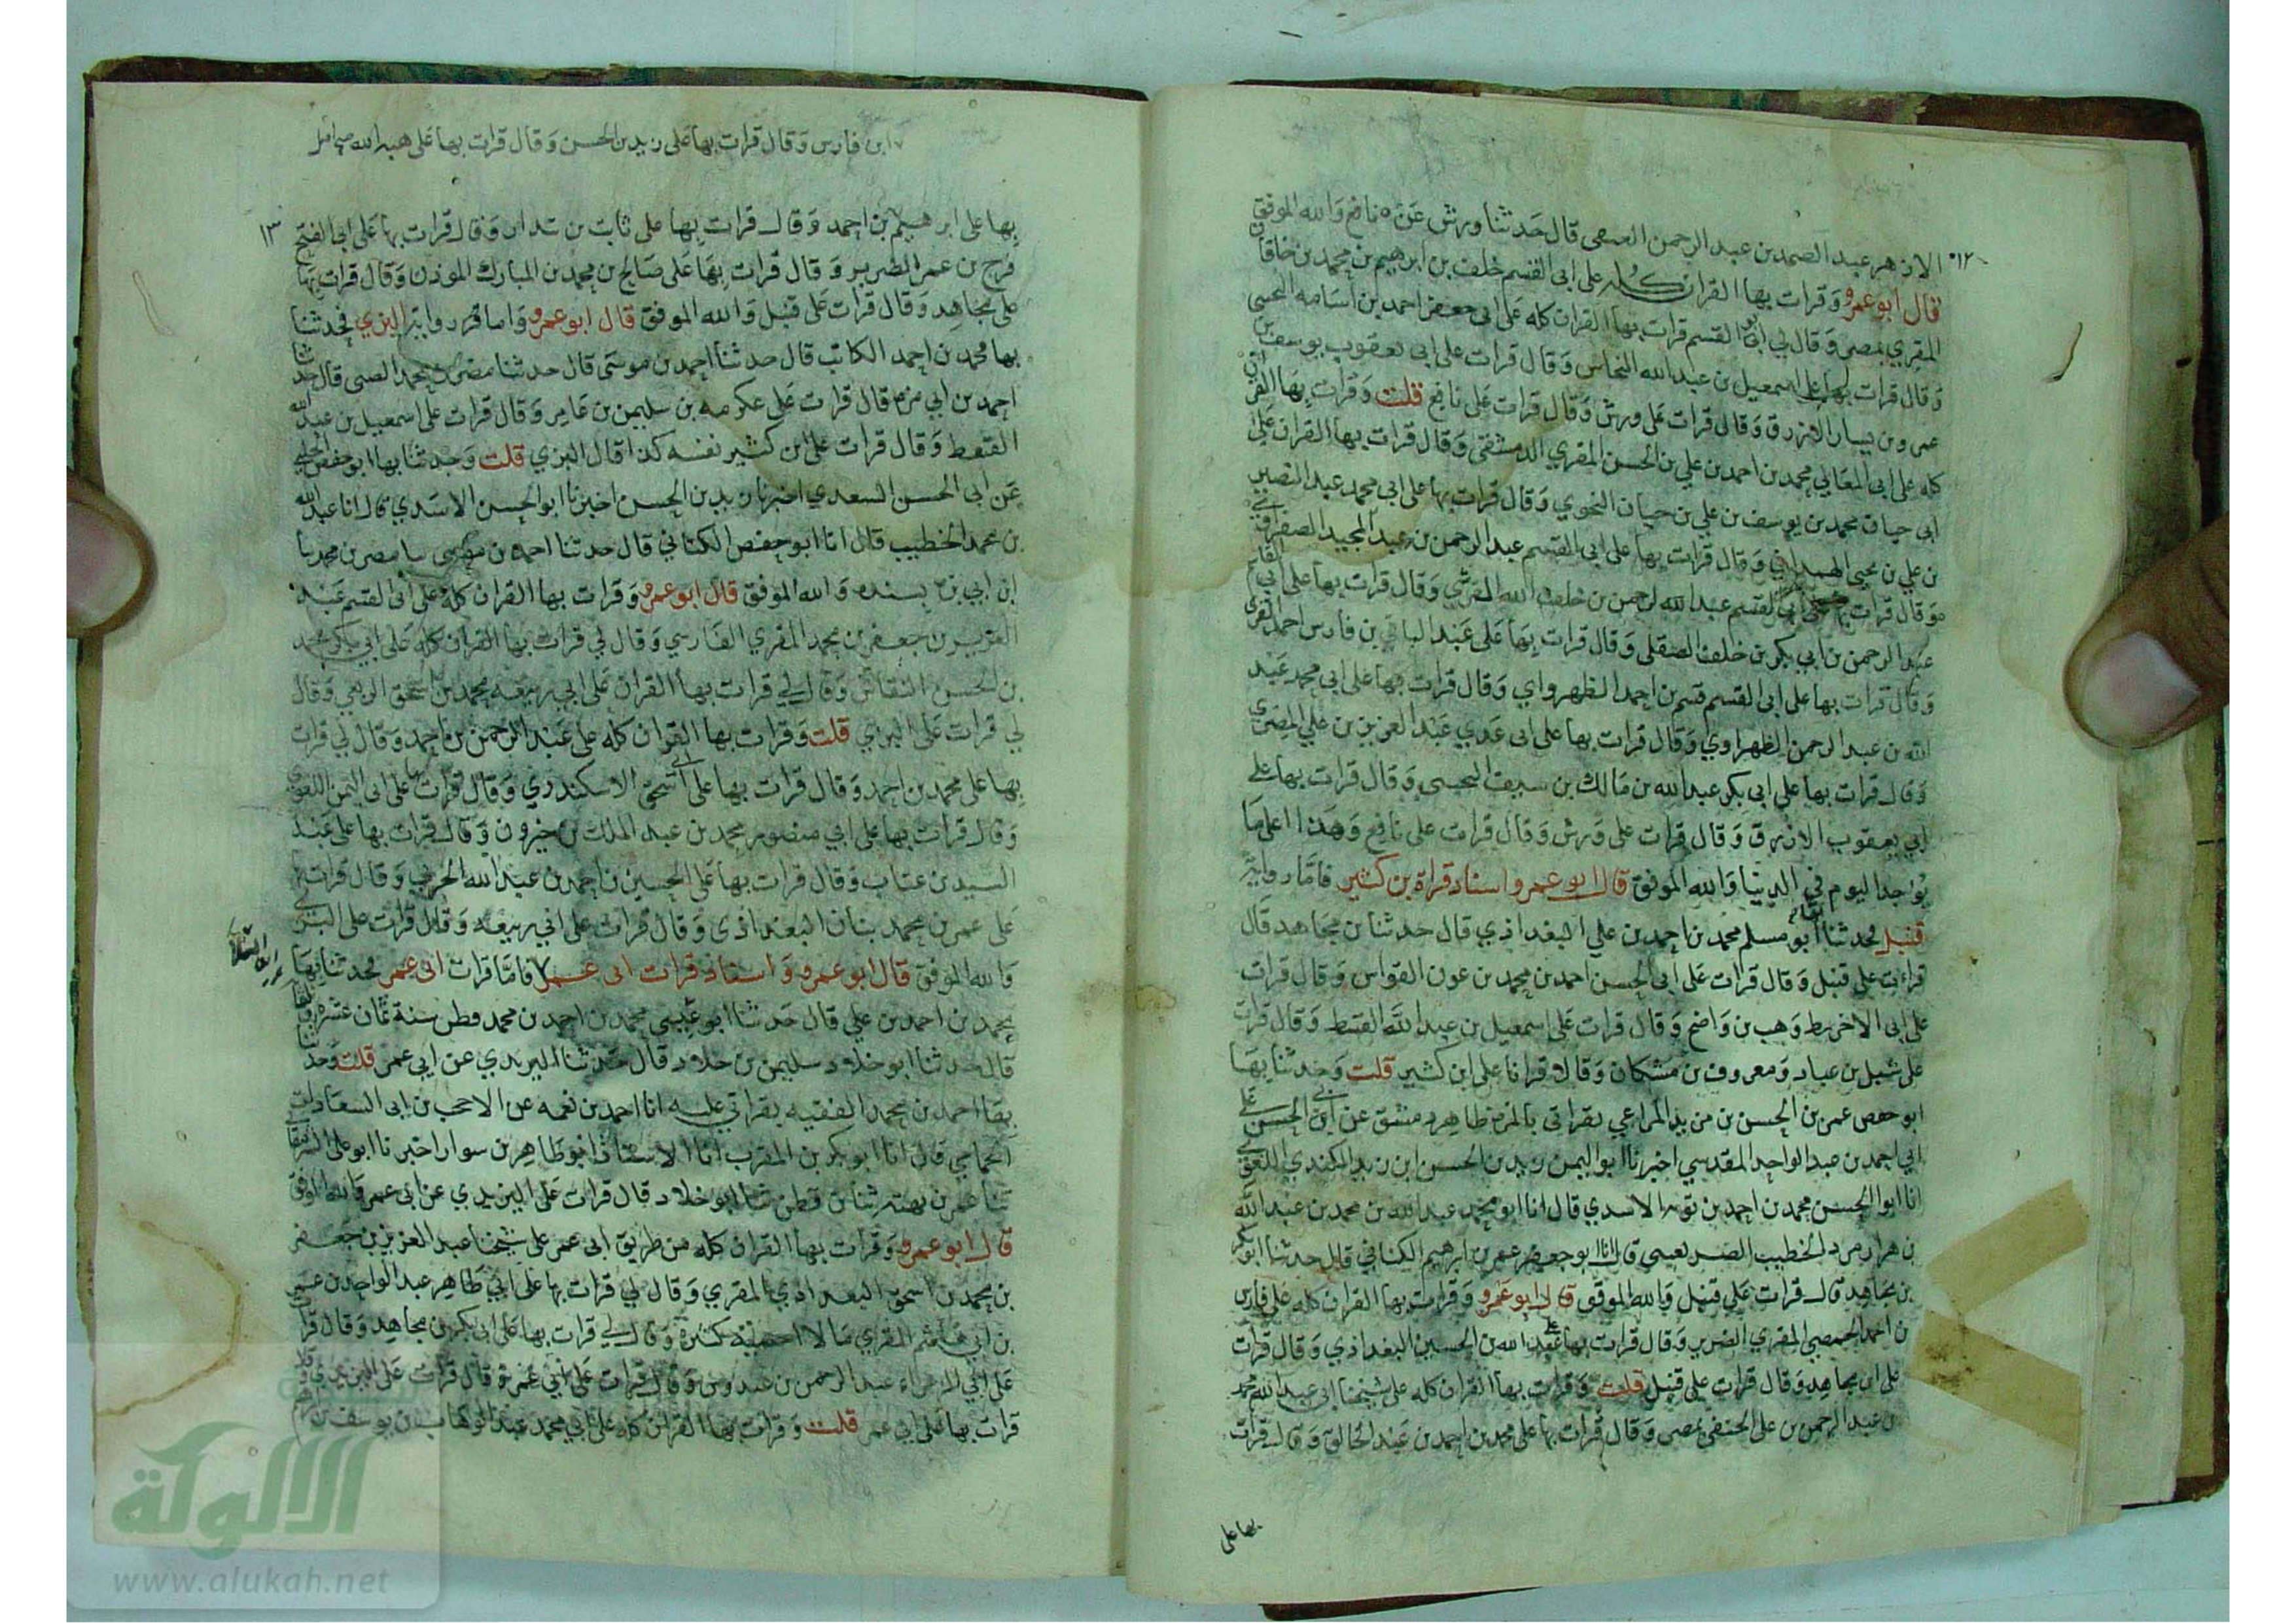 ١٢
الازهر عبد الصمد بن عبد الرحمن العتقى قال حدثنا ورش عن نافع والله الموفق
قال ابو عمرو وقرات بها القران كله على ابى القسم خلف بن ابرهيم بن محمد بن خاقان
المقري بمصر وقال لي ابو القسم قرات بها القران كله على ابى جعفر احمد بن اسامه التجيبى
وقال قرات بها على اسمعيل بن عبد الله النحاس وقال قرات على ابى يعقوب يوسف بن
عمرو بن يسار الازرق وقال قرات على ورش وقال قرات على نافع قلت وقرات بها القران
كله على ابى المعالي محمد بن احمد بن علي بن الحسن المقري الدمشقى وقال قرات بها القران على
ابى حيان محمد بن يوسف بن علي بن حيان النحوي وقال قرات بها على ابى محمد عبد النصير
بن علي بن يحيى الهمداني وقال قرات بها على ابى القسم عبد الرحمن بن عبد المجيد الصفراوي
وقال قرات بها على ابى القسم عبد الرحمن بن خلف الله المقري وقال قرات بها على ابى القاسم
عبد الرحمن بن ابي بكر بن خلف الصقلى وقال قرات بها على عبد الباقي بن فارس احمد المقري
وقال قرات بها على ابى القسم قسيم بن احمد الظهرواي وقال قرات بها على ابى محمد عبد
الله بن عبد الرحمن الظهراوي وقال قرات بها على ابى عدي عبد العزيز بن علي المصري
وقال قرات بها على ابى بكر عبد الله بن مالك بن سيف التجيبى وقال قرات بها على
ابي يعقوب الازرق وقال قرات على ورش وقال قرات على نافع وهذا اعلى ما
يوجد اليوم في الدنيا والله الموفق قال ابو عمرو اسناد قراة بن كثير فاما رواية
قنبل فحدثنا بها ابو مسلم محمد بن احمد بن علي البغداذي قال حدثنا بن مجاهد قال
قرات على قنبل وقال قرات على ابى الحسن احمد بن محمد بن عون القواس وقال قرات
على ابى الاخريط وهب بن واضح وقال قرات على اسمعيل بن عبد الله القسط وقال قرات
على شبل بن عباد ومعروف بن مشكان وقالا قرانا على ابن كثير قلت وحدثنا بها
ابو حفص عمر بن الحسن بن مزيد المراغي بقراتى بالمزه ظاهر دمشق عن ابى الحسن على
ابي احمد بن عبد الواحد المقدسي اخبرنا ابو اليمن زيد بن الحسن ابن زيد الكندي اللغوي
انا ابو الحسن محمد بن احمد بن توبه الاسدي قال انا ابو محمد عبد الله بن محمد بن عبد الله
بن هزارمرد الخطيب الصريفيني قال انا ابو حفص عمر بن ابرهيم الكتاني قال حدثنا ابو بكر
بن مجاهد قال قرات على قنبل والله الموفق قال ابو عمرو وقرات بها القران كله على فارس
بن احمد الحمصي المقري الضرير وقال قرات بها على عبد الله بن الحسين البغداذي وقال قرات
على ابن مجاهد وقال قرات على قنبل قلت وقرات بها القران كله على شيخنا ابى عبد الله محمد
بن عبد الرحمن بن على الحنفي بمصر وقال قرات بها على محمد بن احمد بن عبد الخالق وقال قرات
بها على
ابن فارس وقال قرات بها على زيد بن الحسن وقال قرات بها على هبه الله صح اصل
١٣
بها على ابرهيم بن احمد وقال قرات بها على ثابت بن بندار وقال قرات بها على ابى الفتح
فرج بن عمر الضرير وقال قرات بها على صالح بن محمد بن المبارك الموذن وقال قرات بها
على مجاهد وقال قرات على قنبل والله الموفق قال ابو عمرو واما رواية البزي فحدثنا
بها محمد بن احمد الكاتب قال حدثنا احمد بن موسى قال حدثنا مضر بن محمد الضبى قال حدثنا
احمد بن ابي بزه قال قرات على عكرمه بن سليمن بن عامر وقال قرات على اسمعيل بن عبد الله
القسط وقال قرات على ابن كثير نفسه كذا قال البزي قلت وحدثنا بها ابو حفص الحلبي
عن ابى الحسن السعدي اخبرنا زيد بن الحسن اخبرنا ابو الحسن الاسدي قال انا عبد الله
بن محمد الخطيب قال انا ابو حفص الكتاني قال حدثنا احمد بن موسى نا مضر بن محمد نا
ابن ابي بزه بسنده والله الموفق قال ابو عمرو وقرات بها القران كله على ابى القسم عبد
العزيز بن جعفر بن محمد المقري الفارسي وقال لي قرات بها القران كله على ابي بكر محمد
بن الحسن النقاش وقال لي قرات بها القران على ابي ربيعه محمد بن اسحق الربعي وقال
لي قرات على البزي قلت وقرات بها القران كله على عبد الرحمن بن احمد وقال لي قرات
بها على محمد بن احمد وقال قرات بها على ابى اسحق الاسكندري وقال قرات بها على ابى اليمن اللغوي
وقال قرات بها على ابي منصور محمد بن عبد الملك بن خيرون وقال قرات بها على عبد
السيد بن عتاب وقال قرات بها على الحسين بن احمد بن عبد الله الحربي وقال قرات بها
على عمر بن محمد بنان البغداذى وقال قرات على ابي ربيعه وقال قرات على البزي
والله الموفق قال ابو عمرو واسناد قرات ابى عمرو فاما قرات ابى عمر فحدثنا بها
محمد بن احمد بن علي قال حدثنا ابو عيسى محمد بن احمد بن محمد قطن سنة ثمان عشره
قال حدثنا ابو خلاد سليمن بن خلاد قال حدثنا اليزيدي عن ابي عمر قلت وحدثنا
بها احمد بن محمد الفقيه بقراتي عليه انا احمد بن نعمه عن الاحب بن ابى السعادات
الحمامي قال انا ابو بكر بن المقرب انا الاستاذ ابو طاهر بن سوار اخبرنا ابو على الشرمقانى
ثنا عمر بن بهته ثنا بن قطن ثنا ابو خلاد قال قرات على اليزيدي عن ابى عمر والله الموفق
قال ابو عمرو وقرات بها القران كله من طريق ابى عمر على شيخنا عبد العزيز بن جعفر
بن محمد بن اسحق البغداذي المقري وقال لي قرات بها على ابي طاهر عبد الواحد بن عمر
بن ابي هاشم المقري مالا احصيه كثرة وقال لي قرات بها على ابى بكر بن مجاهد وقال قرات
على ابي الزعراء عبد الرحمن بن عبدوس وقال قرات على ابي عمر وقال قرات على اليزيدي وقال
قرات بها على ابي عمر قلت وقرات بها القران كله على ابي محمد عبد الوهاب بن يوسف بن
الالوكة
www.alukah.net